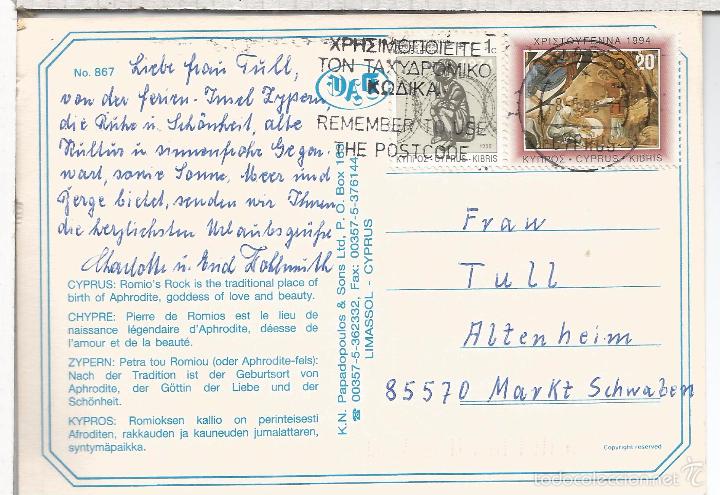 No. 867
Liebe Frau Tull,
von der Ferien-Insel Zypern,
die Ruhe u. Schönheit, alte
Kultur u. sonnenfrohe Gegen-
wart, sowie Sonne, Meer und
Berge bietet, senden wir Ihnen
die herzlichsten Urlaubsgrüße
Charlotte u.
CYPRUS: Romio's Rock is the traditional place of
birth of Aphrodite, goddess of love and beauty.
CHYPRE: Pierre de Romios est le lieu de
naissance légendaire d'Aphrodite, déesse de
l'amour et de la beauté.
ZYPERN: Petra tou Romiou (oder Aphrodite-fels):
Nach der Tradition ist der Geburtsort von
Aphrodite, der Göttin der Liebe und der
Schönheit.
KYPROS: Romioksen kallio on perinteisesti
Afroditen, rakkauden ja kauneuden jumalattaren,
syntymäpaikka.
K.N. Papadopoulos & Sons Ltd, P. O. Box
☎ 00357-5-362332, Fax: 00357-5-376144
LIMASSOL - CYPRUS
ΧΡΗΣΙΜΟΠΟΙΕΙΤΕ
ΤΟΝ ΤΑΧΥΔΡΟΜΙΚΟ
ΚΩΔΙΚΑ
REMEMBER TO USE
THE POSTCODE
1c
ΚΥΠΡΟΣ · CYPRUS · KIBRIS
ΧΡΙΣΤΟΥΓΕΝΝΑ 1994
20
ΚΥΠΡΟΣ · CYPRUS · KIBRIS
CYPRUS
Frau
Tull
Altenheim
85570 Markt Schwaben
Copyright reserved
todocoleccion.net